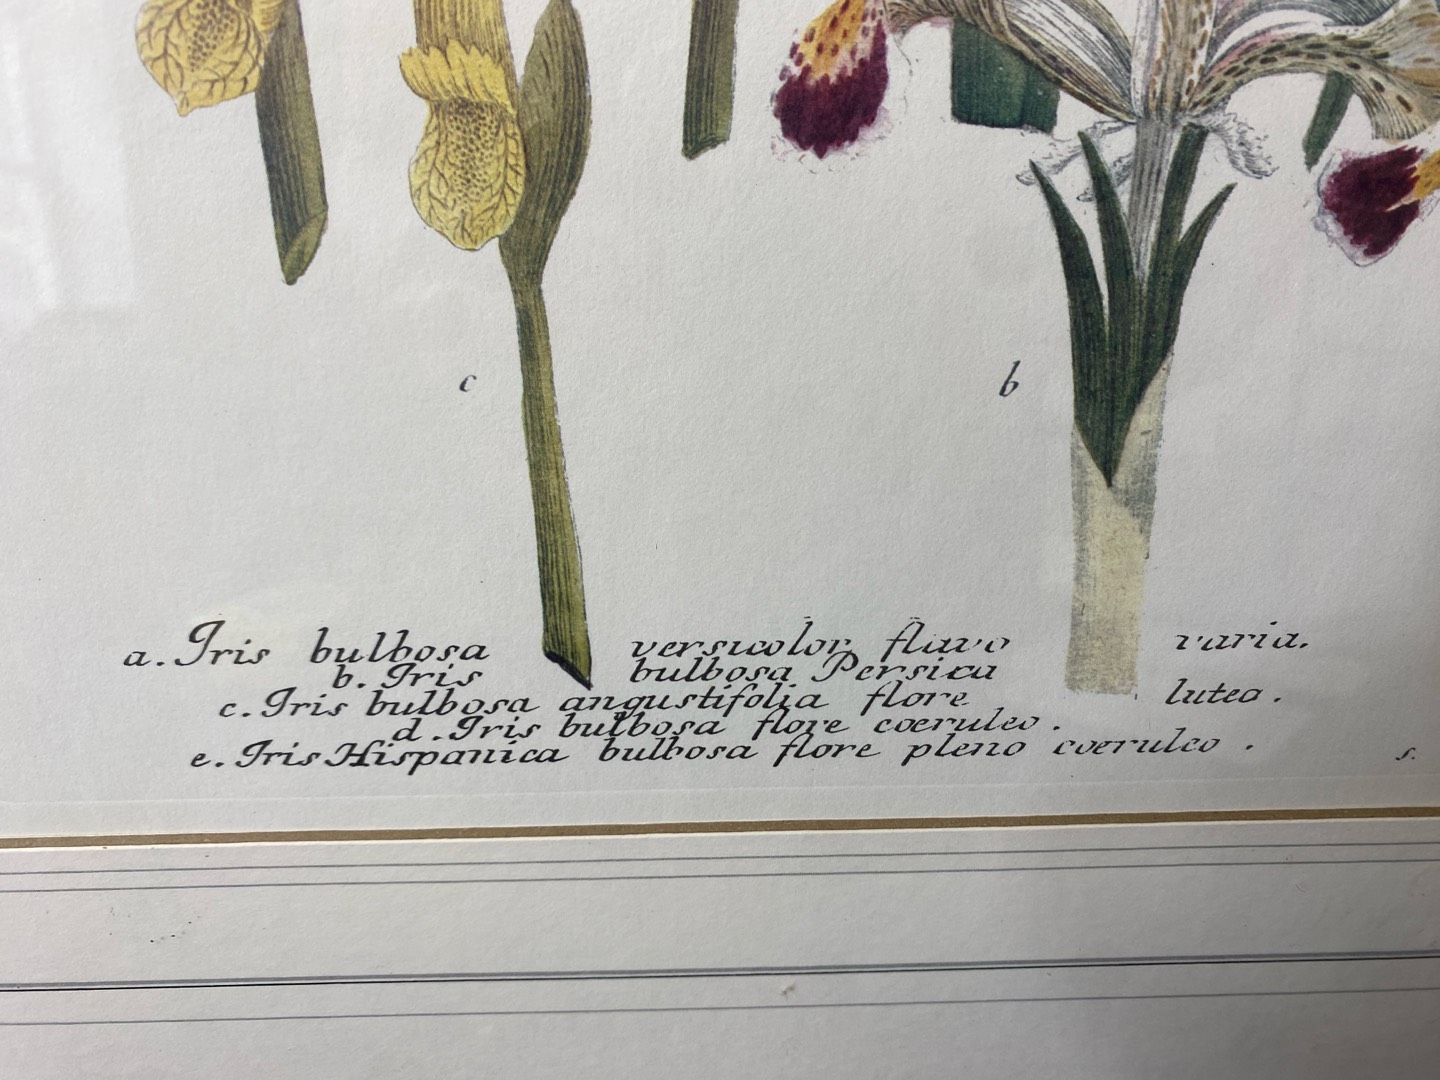 c
b
a. Iris bulbosa versicolor, flavo varia.
b. Iris bulbosa Persica
c. Iris bulbosa angustifolia flore luteo.
d. Iris bulbosa flore coeruleo.
e. Iris Hispanica bulbosa flore pleno coeruleo.
s.